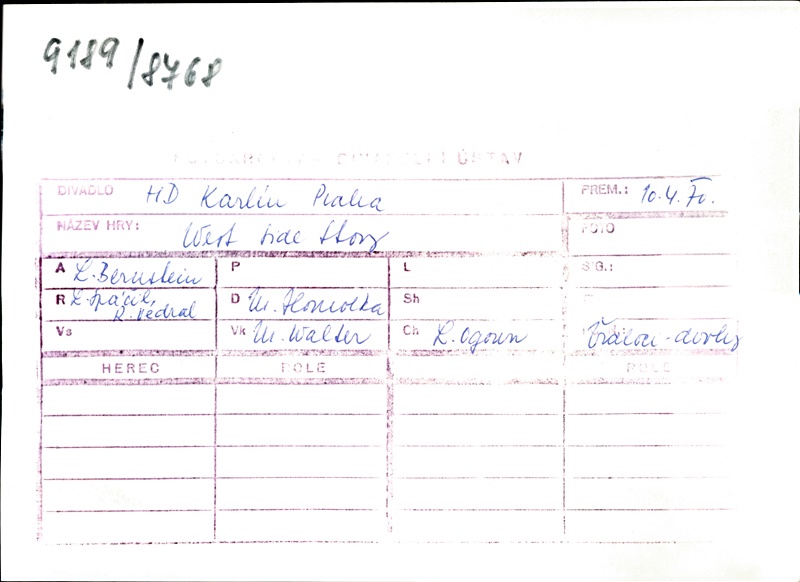 9189/8768
DIVADELNÍ ÚSTAV
DIVADLO HD Karlín Praha PREM.: 10.4.70.
NÁZEV HRY: West side Story FOTO
A L. Bernstein P L SIG.:
R L. Spáčil, R. Vedral D M. Homolka Sh
Vs Vk M. Walter Ch L. Ogoun
HEREC ROLE ROLE